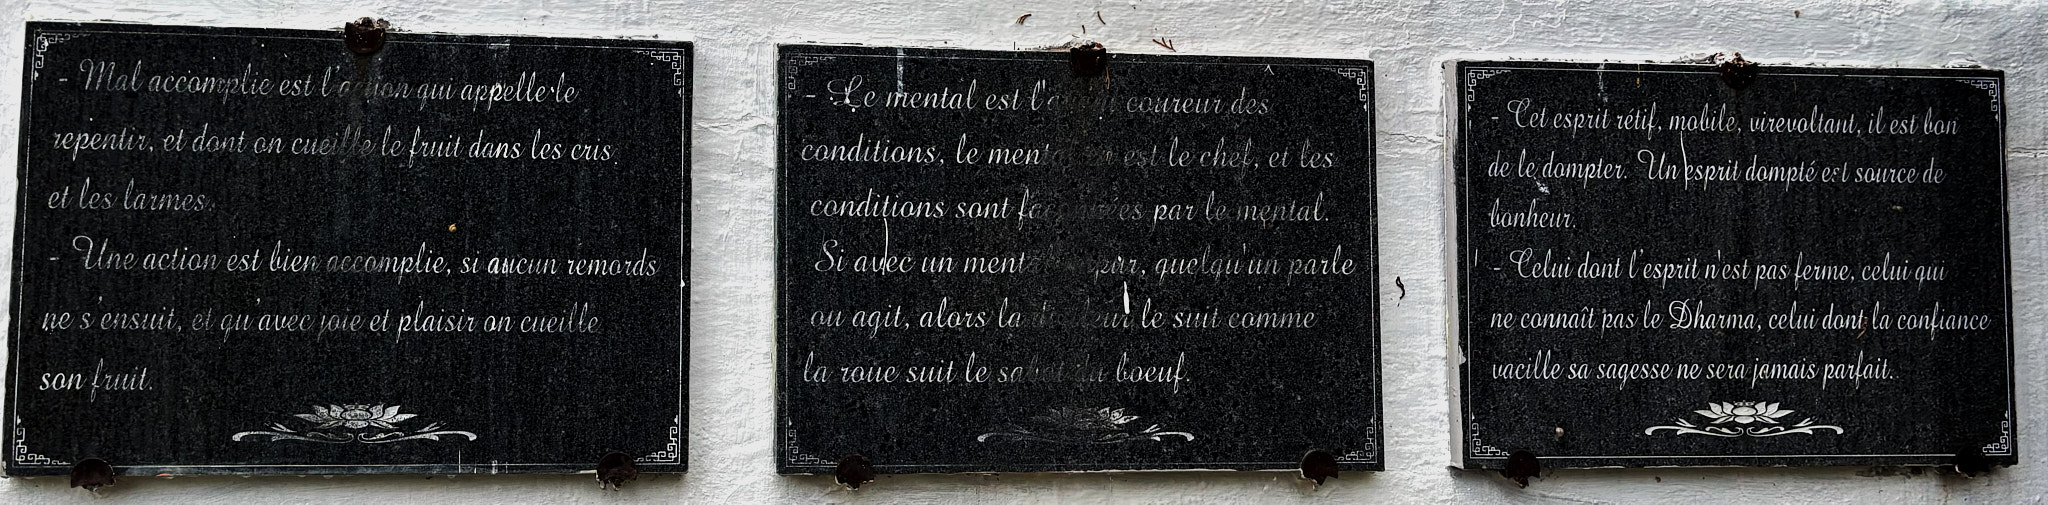 - Mal accomplie est l'action qui appelle le
repentir, et dont on cueille le fruit dans les cris
et les larmes.
- Une action est bien accomplie, si aucun remords
ne s'ensuit, et qu'avec joie et plaisir on cueille
son fruit.
- Le mental est l'avant coureur des
conditions, le mental en est le chef, et les
conditions sont façonnées par le mental.
Si avec un mental impur, quelqu'un parle
ou agit, alors la douleur le suit comme
la roue suit le sabot du boeuf.
- Cet esprit rétif, mobile, virevoltant, il est bon
de le dompter. Un esprit dompté est source de
bonheur.
- Celui dont l'esprit n'est pas ferme, celui qui
ne connaît pas le Dharma, celui dont la confiance
vacille sa sagesse ne sera jamais parfait.